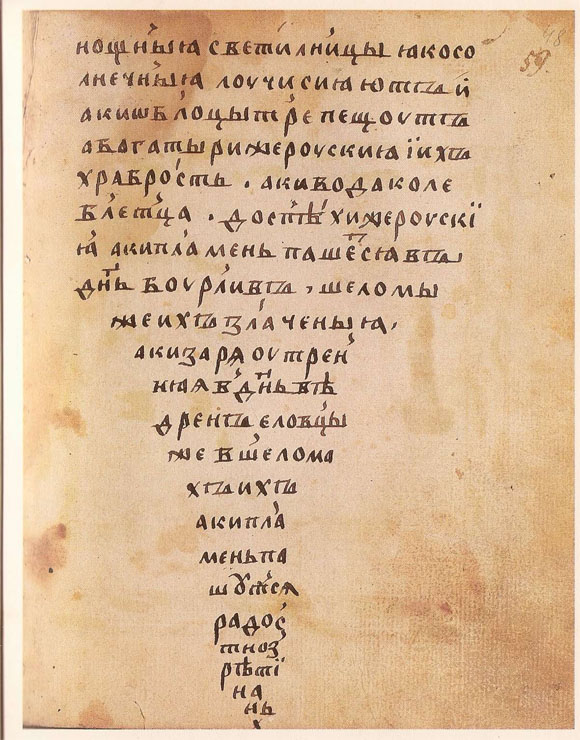 59
нощны́ꙗ светилницы ꙗкосо
лнечны́ꙗ лоучисиꙗютъ и҆
акишблоцытре́пещоутъ
абогатыри жероускиꙗ їихъ
храбро́сть . акивода коле
бле́тца . доспѣ́хи жероускї
ꙗ́ акипламень пашетсявъ
днь боурли́въ , шеломы
жеихъ зла́ченыꙗ ,
акизаря оутрен
нꙗя вднь вѣ
дренъ еловцы
же вшелома
хъихъ
акипла́
меньпа
шутся
радос
тноз
рѣтї
на
нь
х